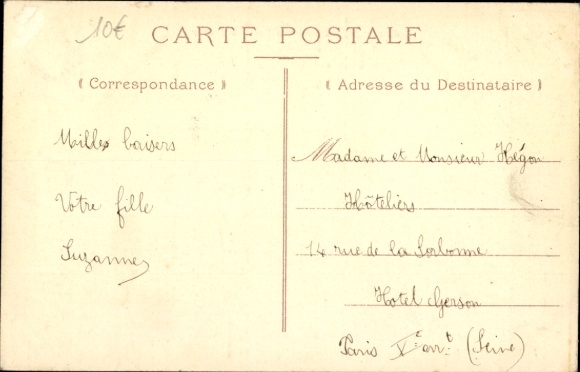 10€
CARTE POSTALE
( Correspondance )
( Adresse du Destinataire )
Milles baisers
Votre fille
Suzanne
Madame et Monsieur Hégon
Hôteliers
14 rue de la Sorbonne
Hotel Gerson
Paris Ve arrt (Seine)